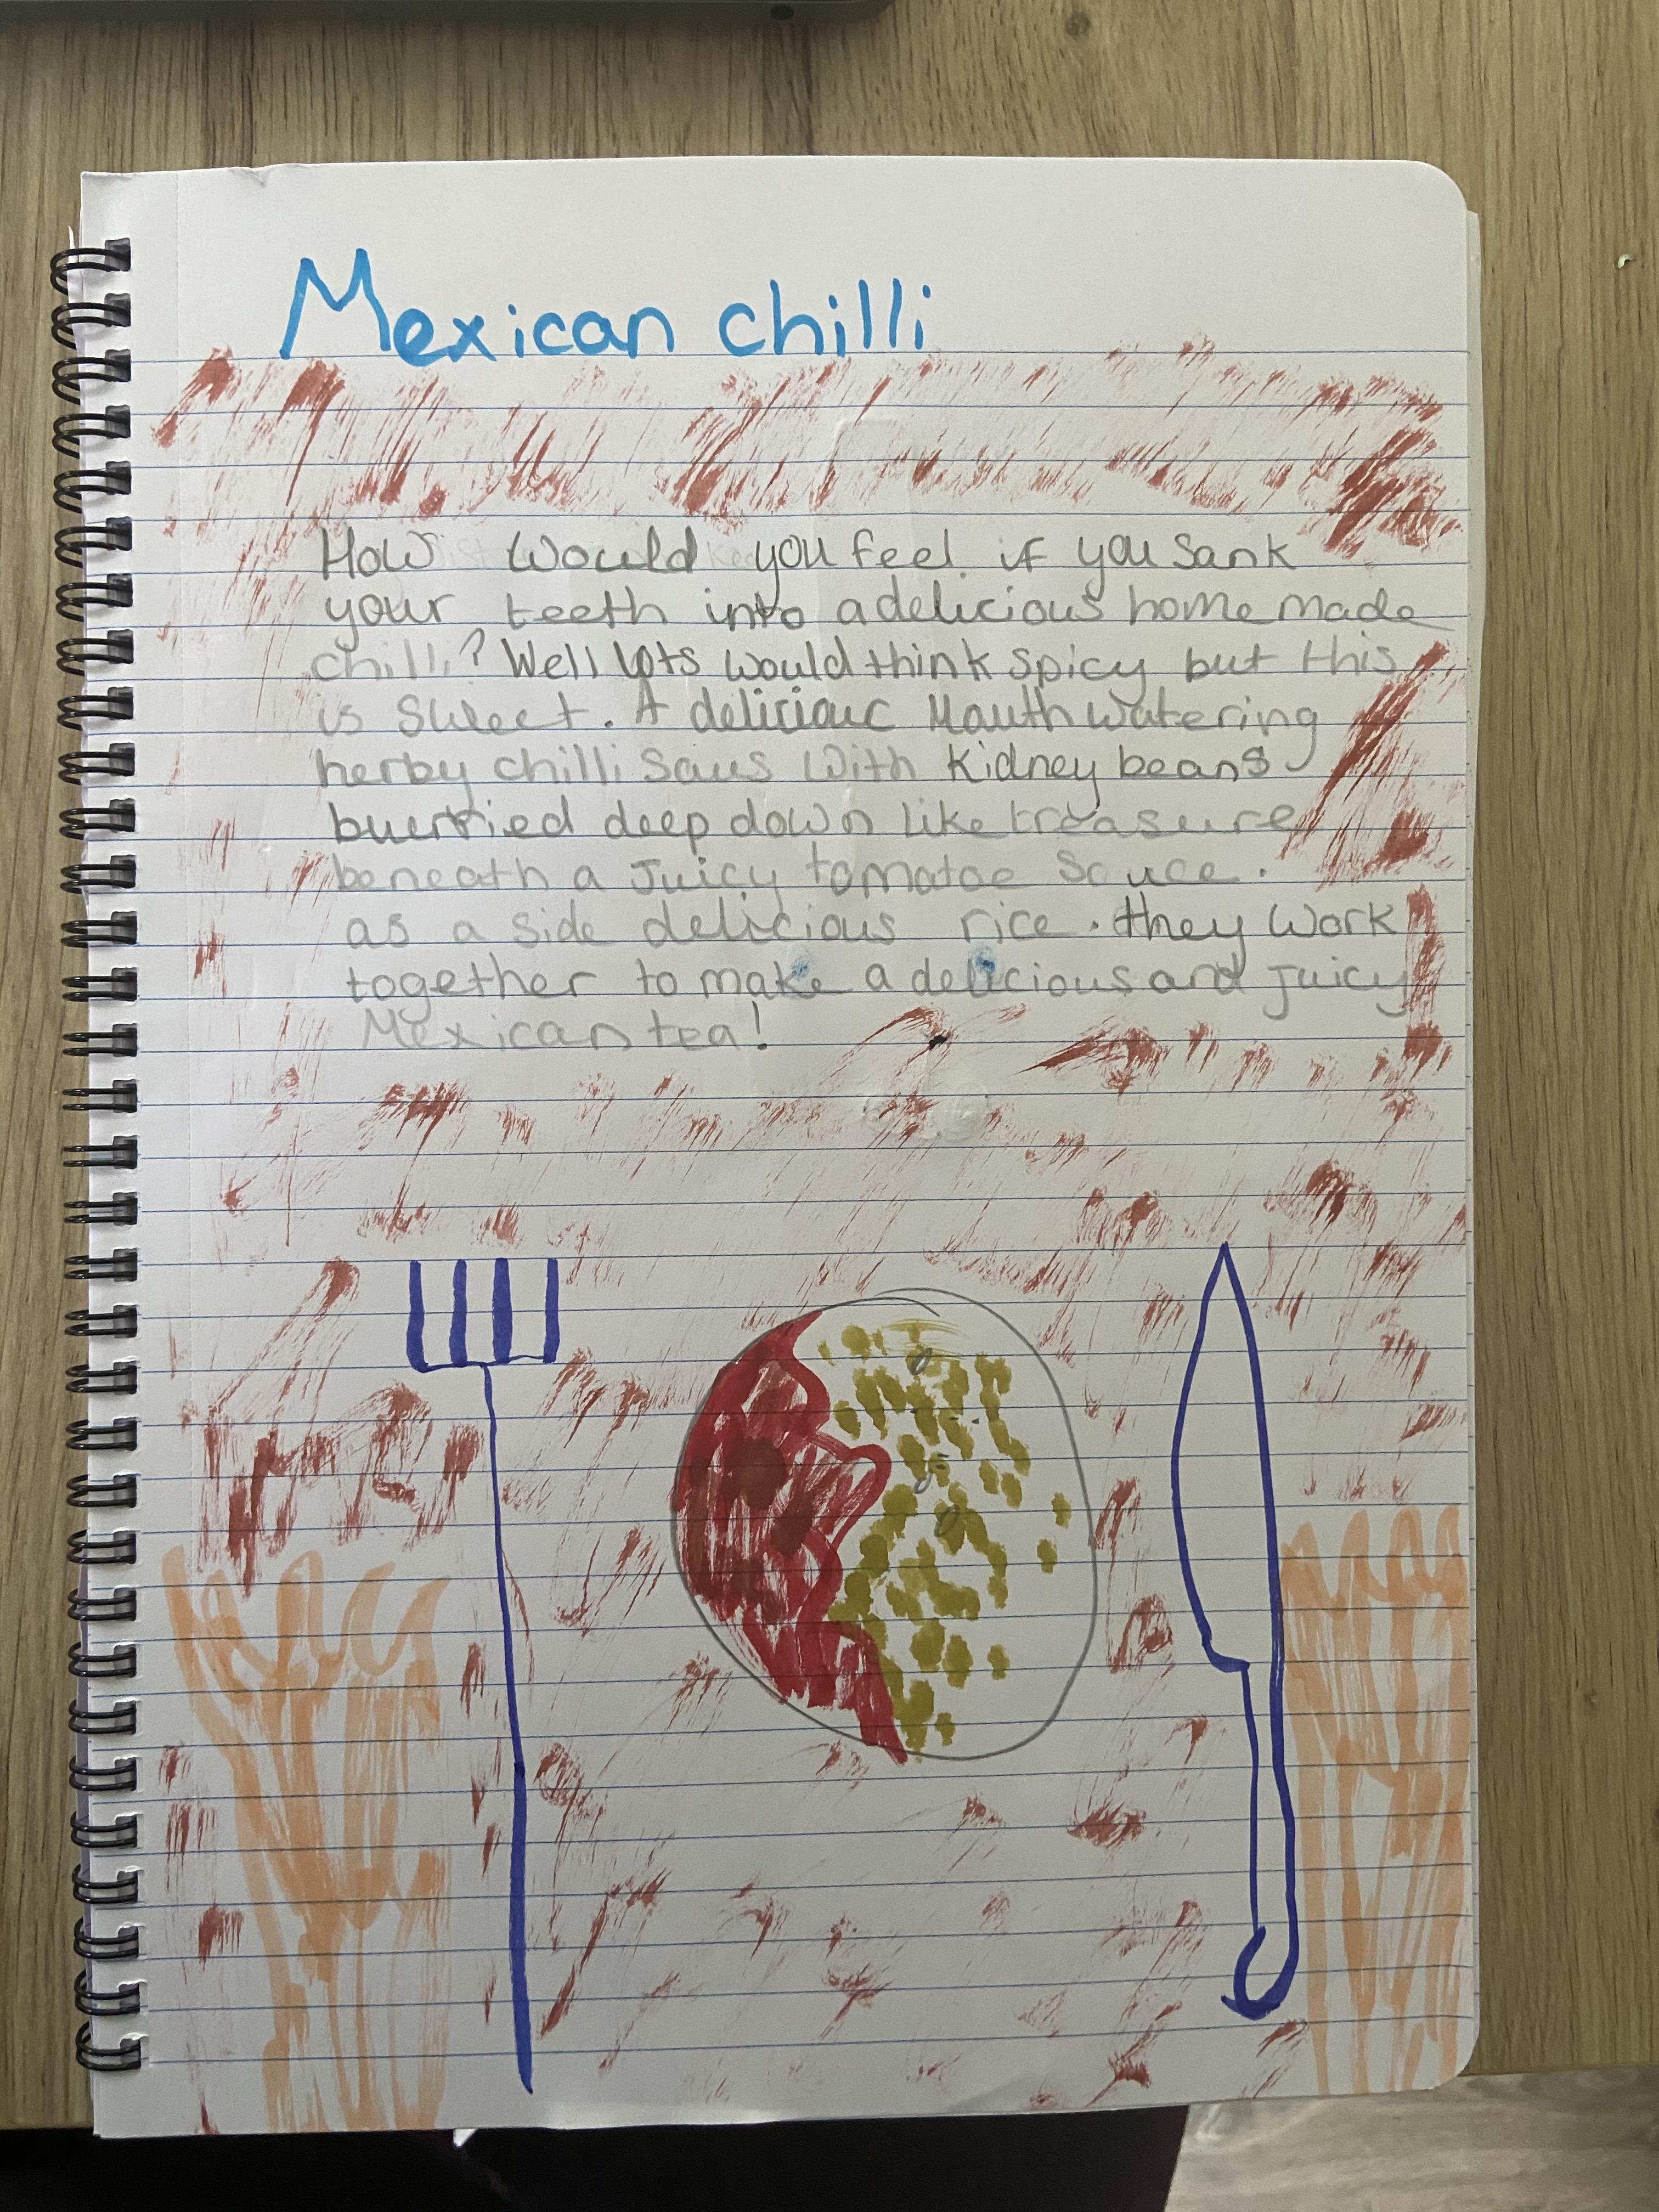 Mexican chilli
How would you feel if you sank
your teeth into a delicious home made
chilli? Well lots would think spicy but this
is sweet. A deliciouc mouth watering
herby chilli saus with kidney beans
buerried deep down like treasure
beneath a juicy tomatoe sauce.
as a side delicious rice. they work
together to make a delicious and juicy
Mexican tea!